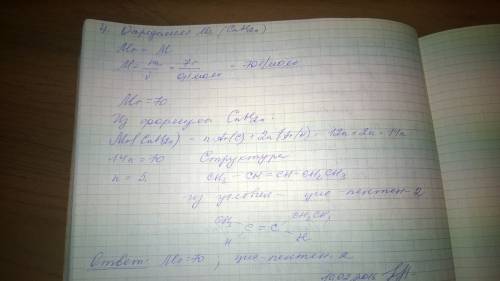 4. Определим Mr (CnH2n)
Mr = M
M = m/ν = 7г/0,1моль = 70г/моль
Mr = 70
Из формулы CnH2n:
Mr(CnH2n) = n·Ar(C) + 2n·Ar(H) = 12n + 2n = 14n
14n = 70 Структура
n = 5. CH3 - CH = CH - CH2CH3
из условия - цис-пентен-2
CH3 CH2CH3
C = C
H H
Ответ: Mr = 70, цис-пентен-2